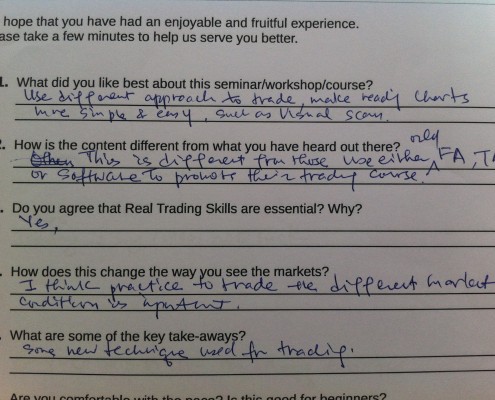 hope that you have had an enjoyable and fruitful experience.
ase take a few minutes to help us serve you better.
1. What did you like best about this seminar/workshop/course?
Use different approach to trade, make ready charts
more simple & easy, such as Visual scan.
2. How is the content different from what you have heard out there?
only
This is different from those use either FA, TA
or Software to promote their trading course.
. Do you agree that Real Trading Skills are essential? Why?
Yes,
. How does this change the way you see the markets?
I think practice to trade the different market
condition is important.
. What are some of the key take-aways?
Some new technique used for trading.
Are you comfortable with the pace? Is this good for beginners?